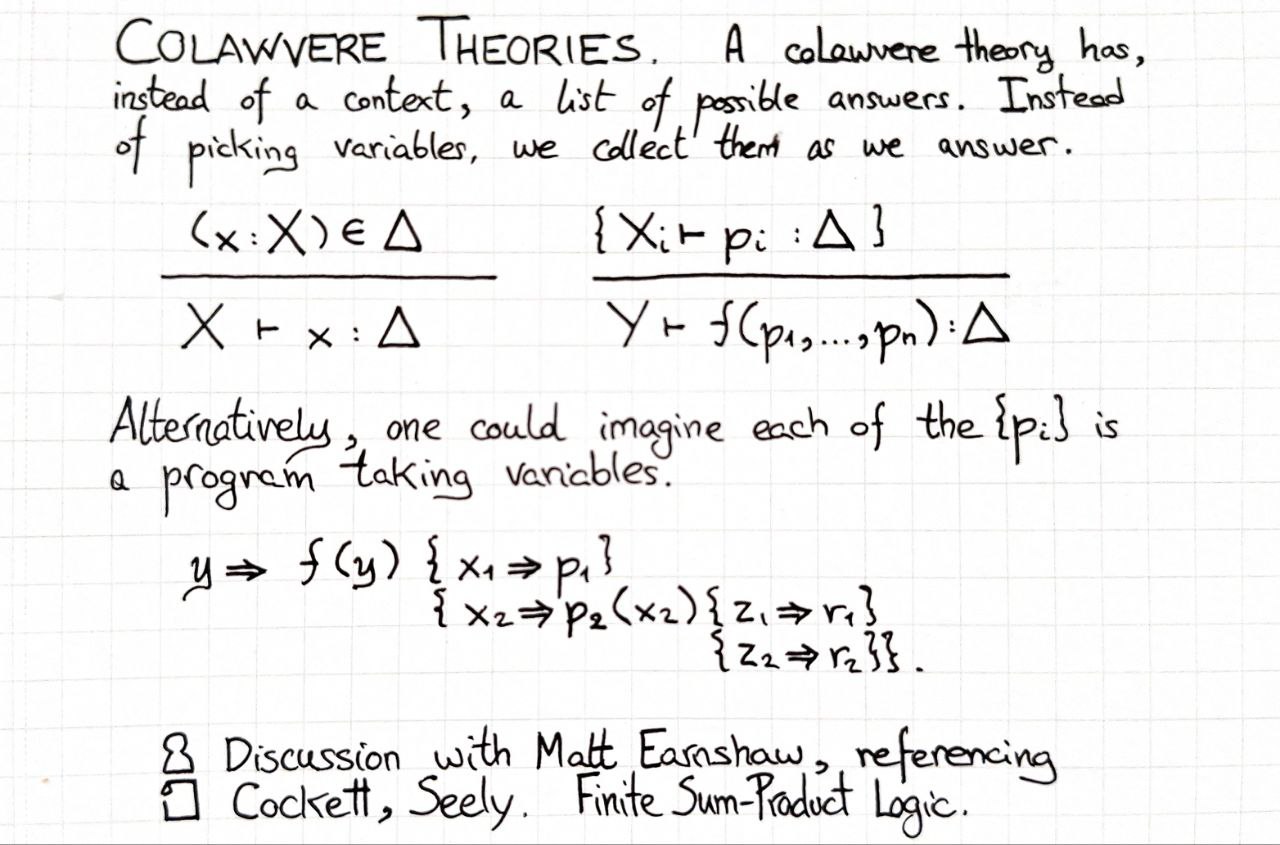 COLAWVERE THEORIES. A colawvere theory has,
instead of a context, a list of possible answers. Instead
of picking variables, we collect them as we answer.
(x:X) ∈ Δ {Xi ⊢ pi : Δ}
X ⊢ x : Δ Y ⊢ f(p1,...,pn) : Δ
Alternatively, one could imagine each of the {pi} is
a program taking variables.
y ⇒ f(y) { x1 ⇒ p1}
{ x2 ⇒ p2(x2) { z1 ⇒ r1}
{ z2 ⇒ r2}}.
Discussion with Matt Earnshaw, referencing
Cockett, Seely. Finite Sum-Product Logic.